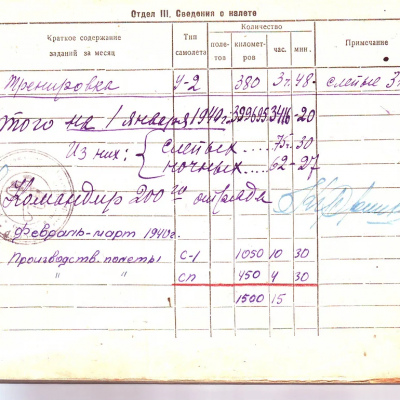 Отдел III. Сведения о налете
Краткое содержание заданий за месяц
Тип самолета
Количество
полетов
километров
час.
мин.
Примечание
Тренировка У-2 380 3 48 слепые 3
Итого на 1 января 1940г. 399695 3416-20
Из них: слепых.....75-30
ночных....62-27
Командир 200го отряда
Февраль-март 1940г.
Производств. полеты С-1 1050 10 30
" " СП 450 4 30
1500 15